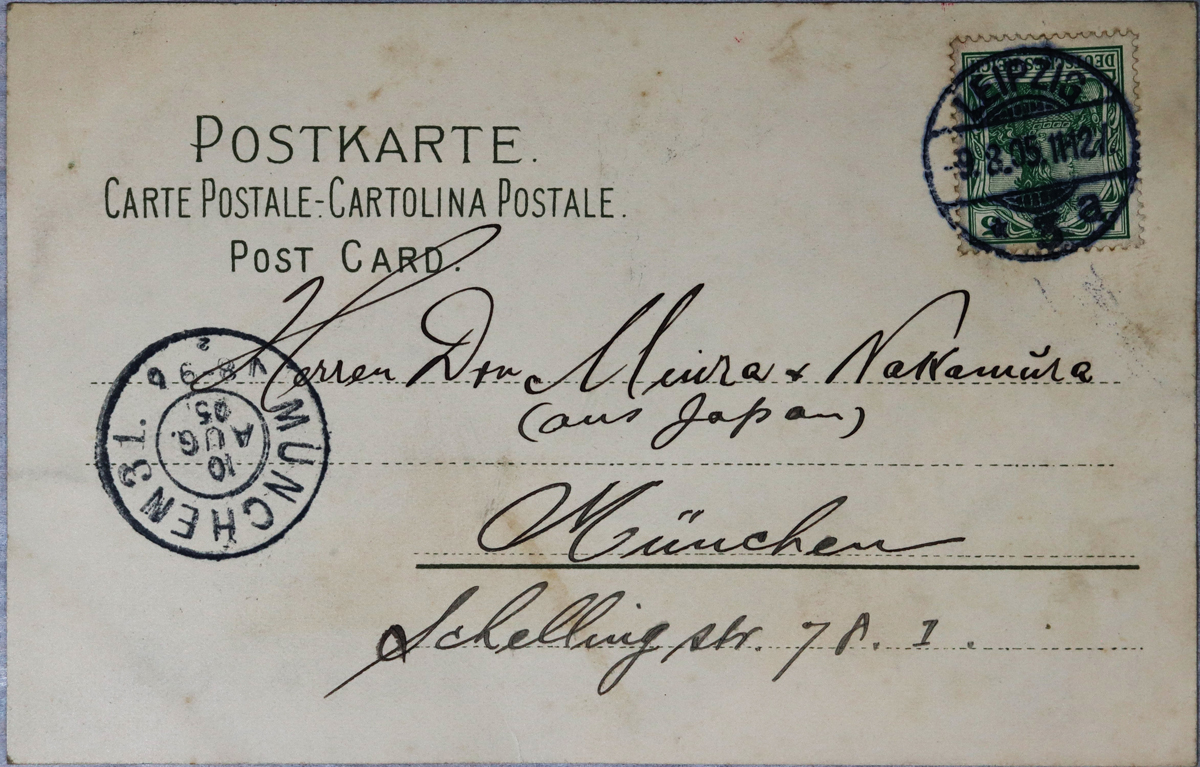 POSTKARTE.
CARTE POSTALE-CARTOLINA POSTALE.
POST CARD.
DEUTSCHES REICH
LEIPZIG
9.8.05. 11-12V.
* 3 a
Herren Drn Miura & Nakamŭra
(aus Japan)
MÜNCHEN 31.
10
AUG.
05.
München
Schellingstr. 78. I.